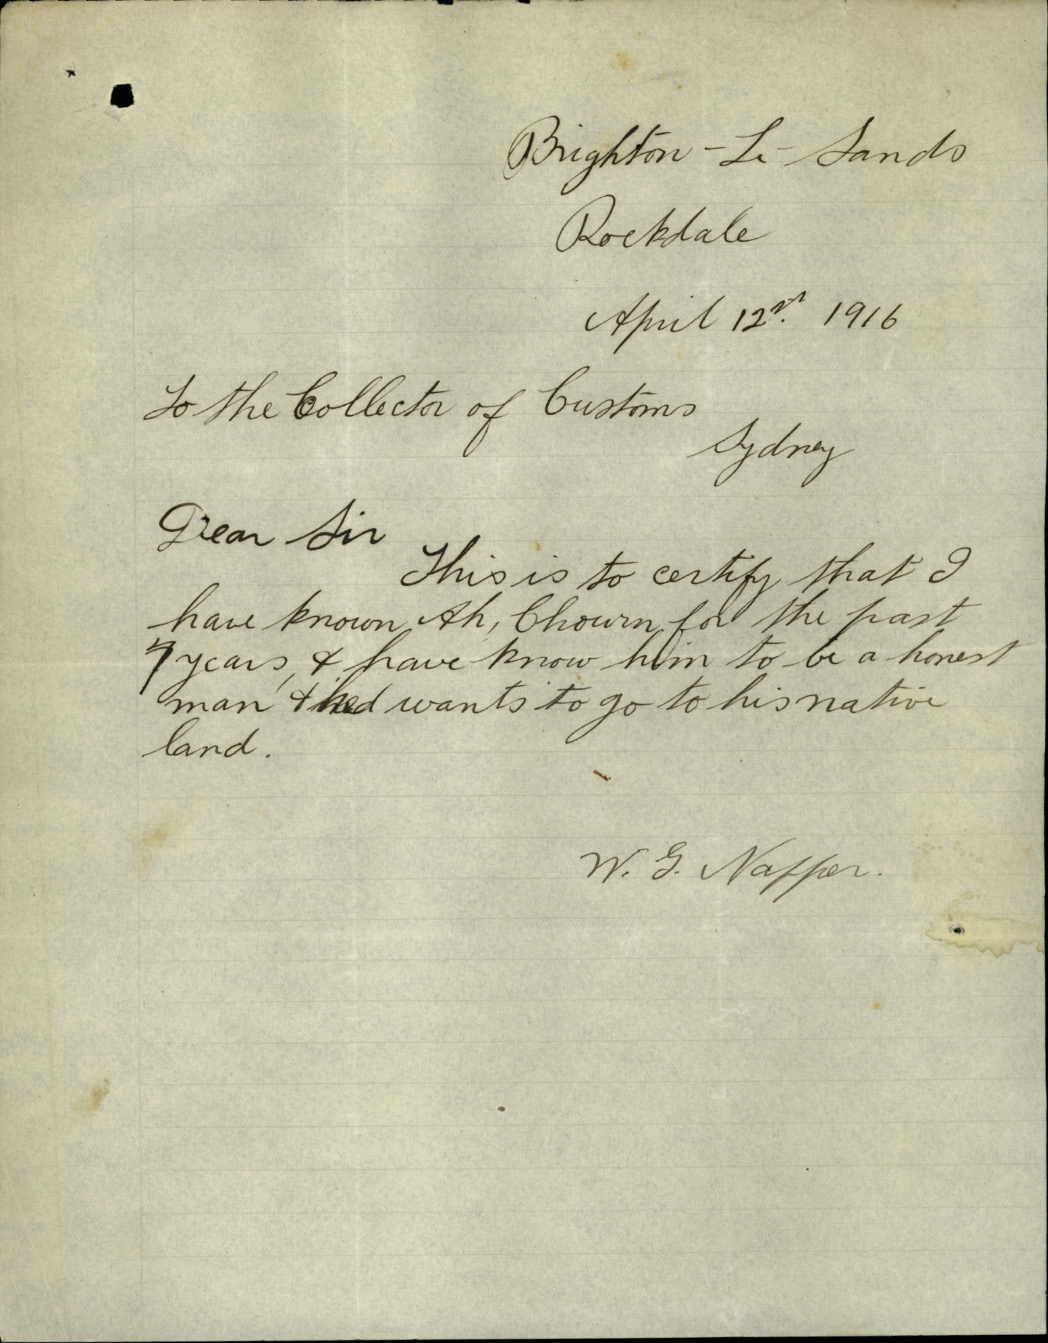 Brighton-Le-Sands
Rockdale
April 12nd. 1916
To the Collector of Customs
Sydney
Dear Sir
This is to certify that I
have known Ah, Chown for the past
7 years, & have know him to be a honest
man & wants to go to his native
land.
W. G. Napper.